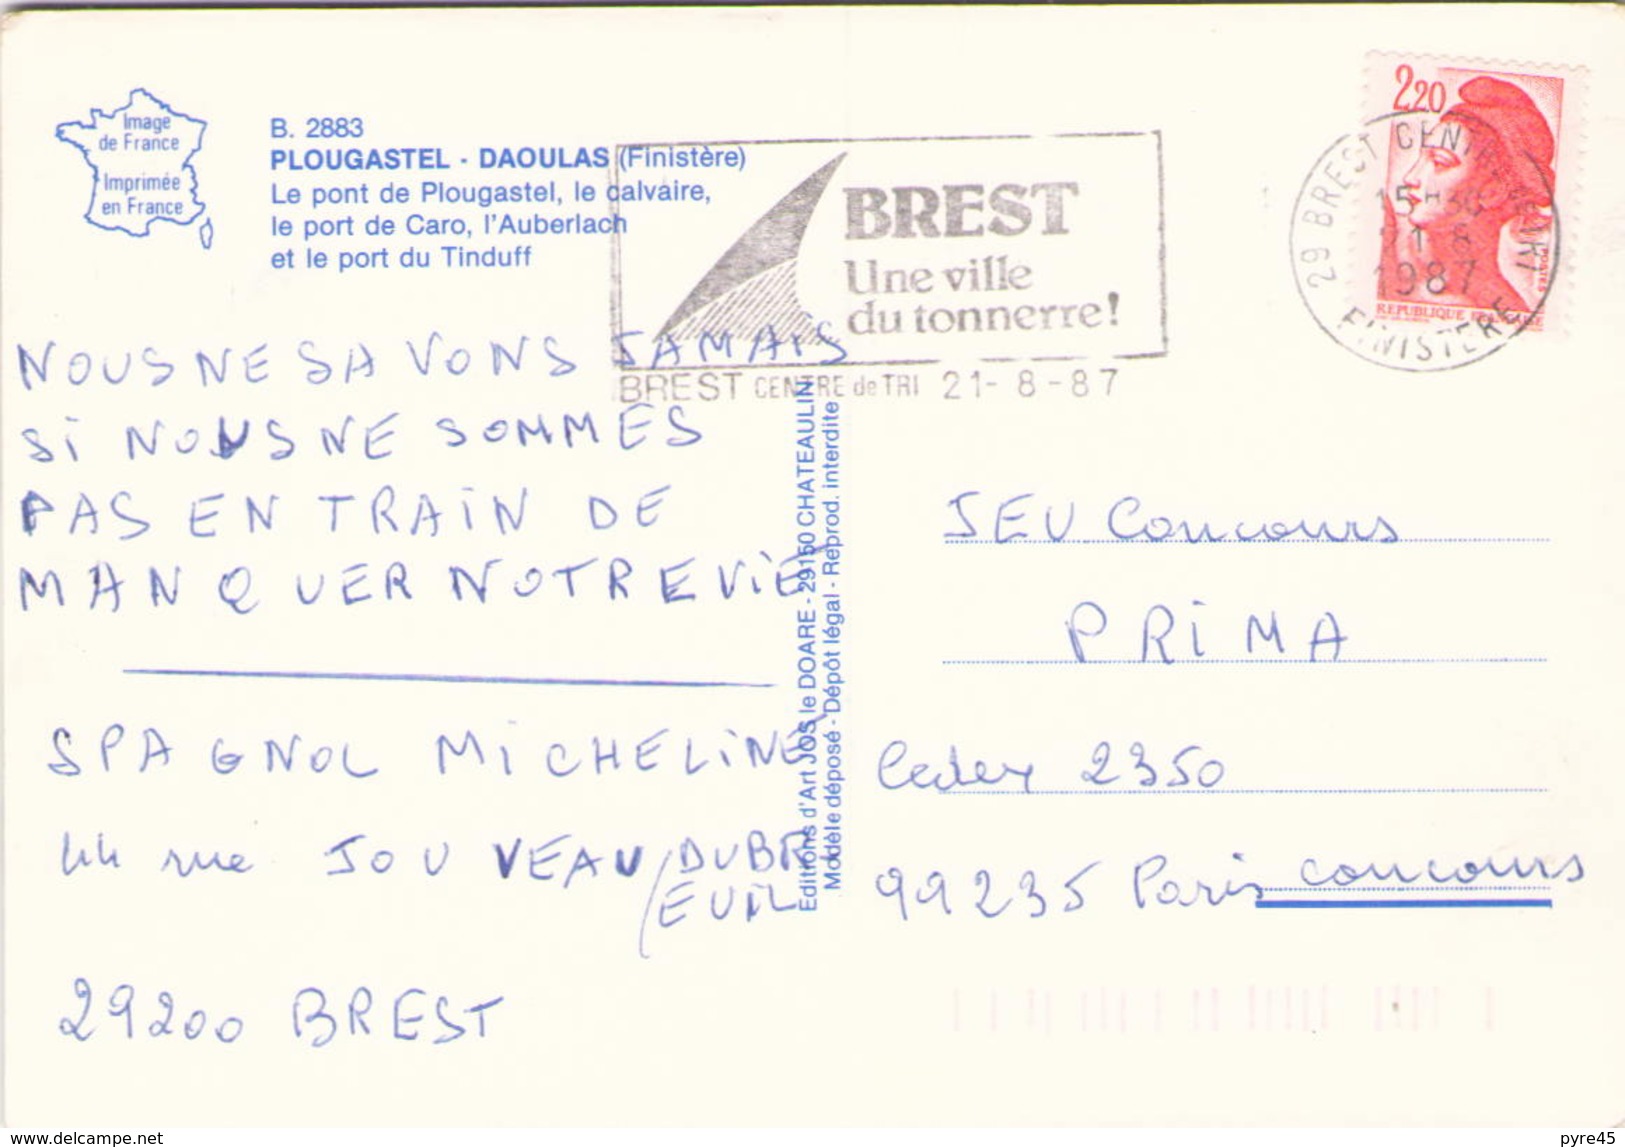 Image
de France
Imprimée
en France
B. 2883
PLOUGASTEL - DAOULAS (Finistère)
Le pont de Plougastel, le calvaire,
le port de Caro, l'Auberlach
et le port du Tinduff
BREST
Une ville
du tonnerre!
BREST CENTRE de TRI 21-8-87
2,20
29 BREST CENTRE DE TRI
15H30
21 8
1987
FINISTERE
POSTES
REPUBLIQUE FRANÇAISE
NOUS NE SAVONS JAMAIS
Si NOUS NE SOMMES
PAS EN TRAiN DE
MANQUER NOTRE ViE
SPAGNOL MiCHELiNE
44 rue JOUVEAU/DUBR
EUIL
29200 BREST
Editions d'Art JOS le DOARE - 29150 CHATEAULIN
Modèle déposé - Dépôt légal - Reprod. interdite
JEU Concours
PRiMA
Cedex 2350
99235 Paris concours
www.delcampe.net
pyre45